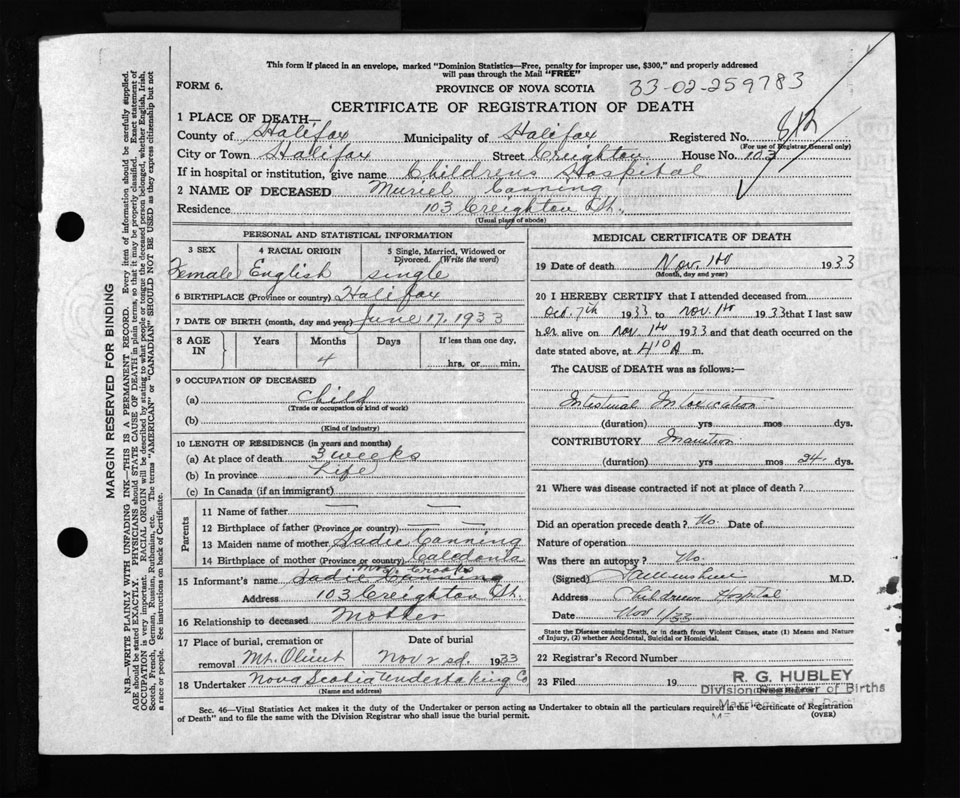 This form if placed in an envelope, marked "Dominion Statistics—Free, penalty for improper use, $300," and properly addressed
will pass through the Mail "FREE"
FORM 6.
PROVINCE OF NOVA SCOTIA
33-02-259783
CERTIFICATE OF REGISTRATION OF DEATH
1 PLACE OF DEATH—
County of Halifax Municipality of Halifax Registered No.
(For use of Registrar General only)
City or Town Halifax Street Creighton House No. 103
If in hospital or institution, give name Childrens Hospital
2 NAME OF DECEASED Muriel Canning
Residence 103 Creighton St.
(Usual place of abode)
PERSONAL AND STATISTICAL INFORMATION
3 SEX 4 RACIAL ORIGIN 5 Single, Married, Widowed or Divorced. (Write the word)
Female English single
6 BIRTHPLACE (Province or country) Halifax
7 DATE OF BIRTH (month, day and year) June 17, 1933
8 AGE IN Years Months Days If less than one day,
4 hrs. or min.
9 OCCUPATION OF DECEASED
(a) Child
(Trade or occupation or kind of work)
(b)
(Kind of industry)
10 LENGTH OF RESIDENCE (in years and months)
(a) At place of death 3 weeks
(b) In province Life
(c) In Canada (if an immigrant)
Parents
11 Name of father — —
12 Birthplace of father (Province or country) — —
13 Maiden name of mother Sadie Canning
14 Birthplace of mother (Province or country) Caledonia
Mrs. Crooks
15 Informant's name Sadie Canning
Address 103 Creighton St.
16 Relationship to deceased Mother
17 Place of burial, cremation or removal Mt. Olivet
Date of burial Nov 2nd. 1933
18 Undertaker Nova Scotia Undertaking Co
(Name and address)
MEDICAL CERTIFICATE OF DEATH
19 Date of death Nov. 1st 1933
(Month, day and year)
20 I HEREBY CERTIFY that I attended deceased from
Oct. 7th 1933 to Nov. 1st 1933 that I last saw
her alive on Nov. 1st 1933 and that death occurred on
date stated above, at 4 10 A m.
The CAUSE of DEATH was as follows:—
Intestinal Intoxication
(duration) yrs mos dys.
CONTRIBUTORY Inanition
(duration) yrs mos 24 dys.
21 Where was disease contracted if not at place of death?
Did an operation precede death? No. Date of
Nature of operation
Was there an autopsy? No.
(Signed) M.D.
Address Childrens Hospital
Date Nov 1/33
State the Disease causing Death, or in death from Violent Causes, state (1) Means and Nature of Injury, (2) whether Accidental, Suicidal or Homicidal.
22 Registrar's Record Number
23 Filed 19
R. G. HUBLEY
Division Registrar of Births
Sec. 46—Vital Statistics Act makes it the duty of the Undertaker or person acting as Undertaker to obtain all the particulars required in the "Certificate of Registration
of Death" and to file the same with the Division Registrar who shall issue the burial permit.
(OVER)
MARGIN RESERVED FOR BINDING
N.B.—WRITE PLAINLY WITH UNFADING INK—THIS IS A PERMANENT RECORD. Every item of information should be carefully supplied.
AGE should be stated EXACTLY. PHYSICIANS should state CAUSE OF DEATH in plain terms, so that it may be properly classified. Exact statement of
OCCUPATION is very important. RACIAL ORIGIN will be described by stating to what people or tongue the deceased person belonged, whether English, Irish,
Scotch, French, German, Russian, Ruthenian, etc. The terms "AMERICAN" or "CANADIAN" SHOULD NOT BE USED as they express citizenship but not
a race or people. See instructions on back of Certificate.